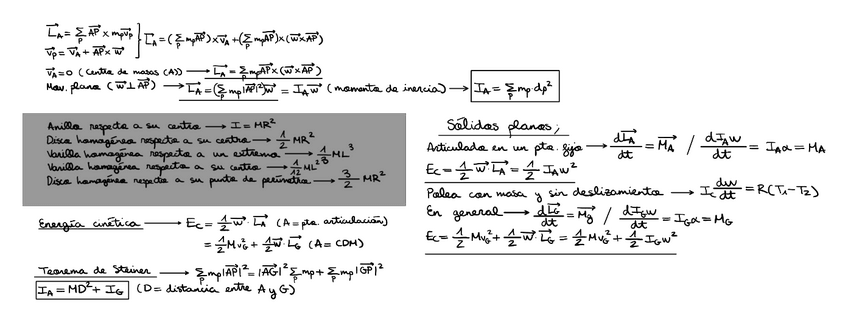 L⃗_A = Σ_p A⃗P × m_p v⃗_p
v⃗_p = v⃗_A + A⃗P × w⃗ } L⃗_A = (Σ_p m_p A⃗P) × v⃗_A + (Σ_p m_p A⃗P) × (w⃗ × A⃗P)
v⃗_A = 0 (Centro de masas (A)) → L⃗_A = Σ_p m_p A⃗P × (w⃗ × A⃗P)
Mov. plano (w⃗ ⊥ A⃗P) → L⃗_A = (Σ_p m_p |A⃗P|²) w⃗ = I_A w⃗ (momento de inercia) → I_A = Σ_p m_p · d_p²
Anillo respecto a su centro → I = MR²
Disco homogéneo respecto a su centro → 1/2 MR²
Varilla homogénea respecto a un extremo → 1/3 ML³
Varilla homogénea respecto a su centro → 1/12 ML²
Disco homogéneo respecto a su punto de perímetro → 3/2 MR²
Energía cinética → E_c = 1/2 w⃗ · L⃗_A (A = pto. articulación)
= 1/2 M v_G² + 1/2 w⃗ · L⃗_G (A = CDM)
Teorema de Steiner → Σ_p m_p |A⃗P|² = |A⃗G|² Σ_p m_p + Σ_p m_p |G⃗P|²
I_A = MD² + I_G (D = distancia entre A y G)
Sólidos planos;
Articulado en un pto. fijo → dL⃗_A/dt = M⃗_A / dI_A w/dt = I_A α = M_A
E_c = 1/2 w⃗ · L⃗_A = 1/2 I_A w²
Polea con masa y sin deslizamiento → I_c dw/dt = R(T₁ - T₂)
En general → dL⃗_G/dt = M⃗_G / dI_G w/dt = I_G α = M_G
E_c = 1/2 M v_G² + 1/2 w⃗ · L⃗_G = 1/2 M v_G² + 1/2 I_G w²